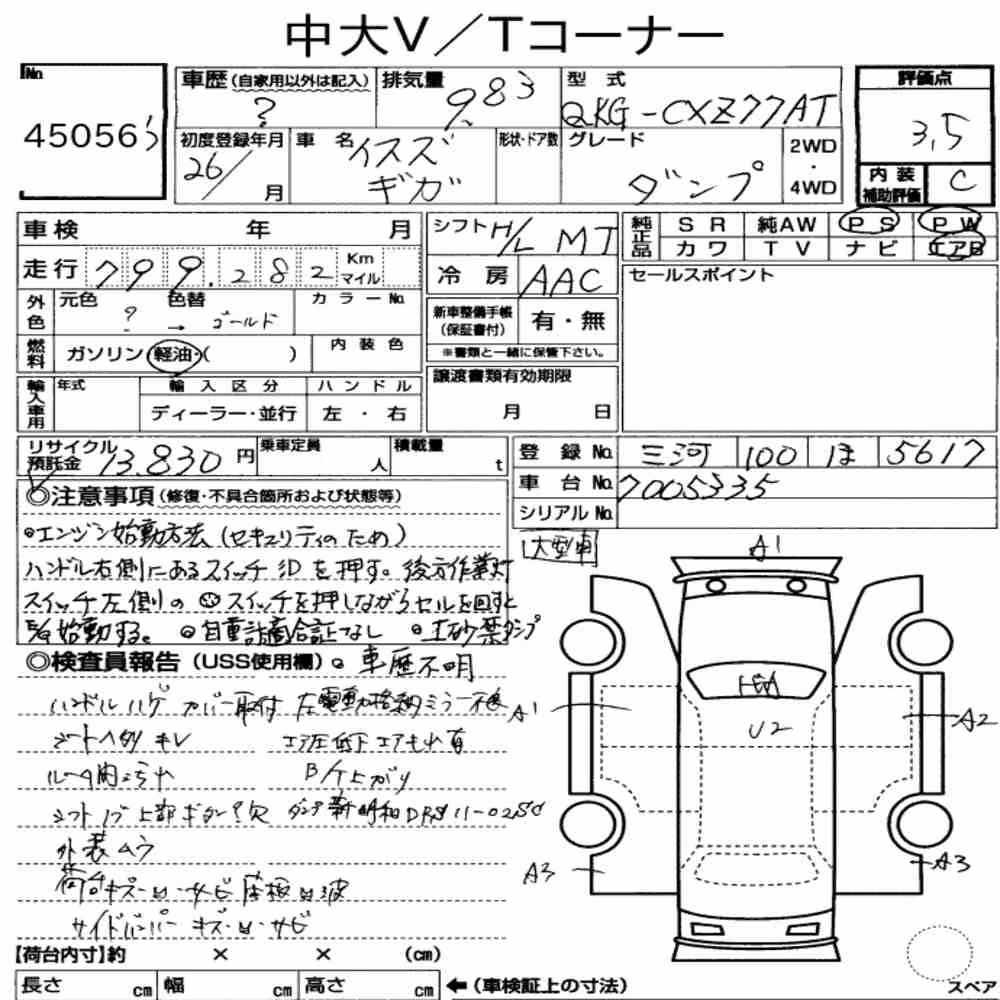 中大V／Tコーナー
No.
45056
車歴 (自家用以外は記入) ?
排気量 9.83
型式 QKG-CXZ77AT
評価点 3.5
内装補助評価 C
初度登録年月 26/ 月
車名 イスズ ギガ
形状・ドア数
グレード ダンプ
2WD・4WD
車検 年 月
走行 799.282 Km マイル
シフト H/L MT
冷房 AAC
純正品 SR 純AW PS PW
カワ TV ナビ エアB
セールスポイント
外色 元色 ? → 色替 ゴールド
カラーNo.
燃料 ガソリン・軽油・( )
内装色
新車整備手帳(保証書付) 有・無
※書類と一緒に保管下さい。
輸入車用 年式 輸入区分 ハンドル
ディーラー・並行 左・右
譲渡書類有効期限
月 日
リサイクル預託金 13.830 円
乗車定員 人
積載量 t
登録No. 三河 100 ほ 5617
車台No. 7005335
シリアルNo.
◎注意事項 (修復・不具合箇所および状態等)
大型車
◎エンジン始動方法 (セキュリティのため)
ハンドル右側にあるスイッチ を押す。後方作業灯
スイッチ左側の スイッチを押しながらセルを回すと
始動する。 ◎自重計適合証なし ◎土砂禁ダンプ
◎検査員報告 (USS使用欄) 。車歴不明
ハンドルハゲ カバー取付 左電動格納ミラー不良
シートヘタリ キレ エア圧低下エアモレ有
上がり
シフトノブ上部ボタン 欠 ダンプ新明和
外装ムラ
荷台キズ・凹・サビ 床板凹波
サイドバンパー キズ・凹・サビ
A1
A1
U2
A2
A3
A3
【荷台内寸】約 × × (cm)
長さ cm 幅 cm 高さ cm ←(車検証上の寸法)
スペア